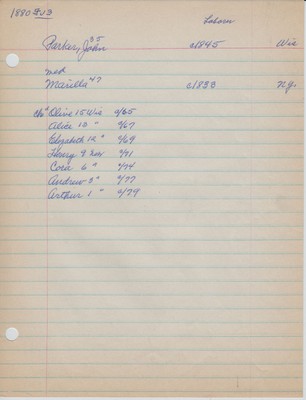 1880 Fv3
Laborer
Parker, John 35 c1845 Wis
md
Marilla 47 c1833 N.Y.
Chd Olive 15 Wis c/65
Alice 13 " c/67
Elizabeth 12 " c/69
Henry 9 c/71
Cora 6 " c/74
Andrew 3 " c/77
Arthur 1 " c/79